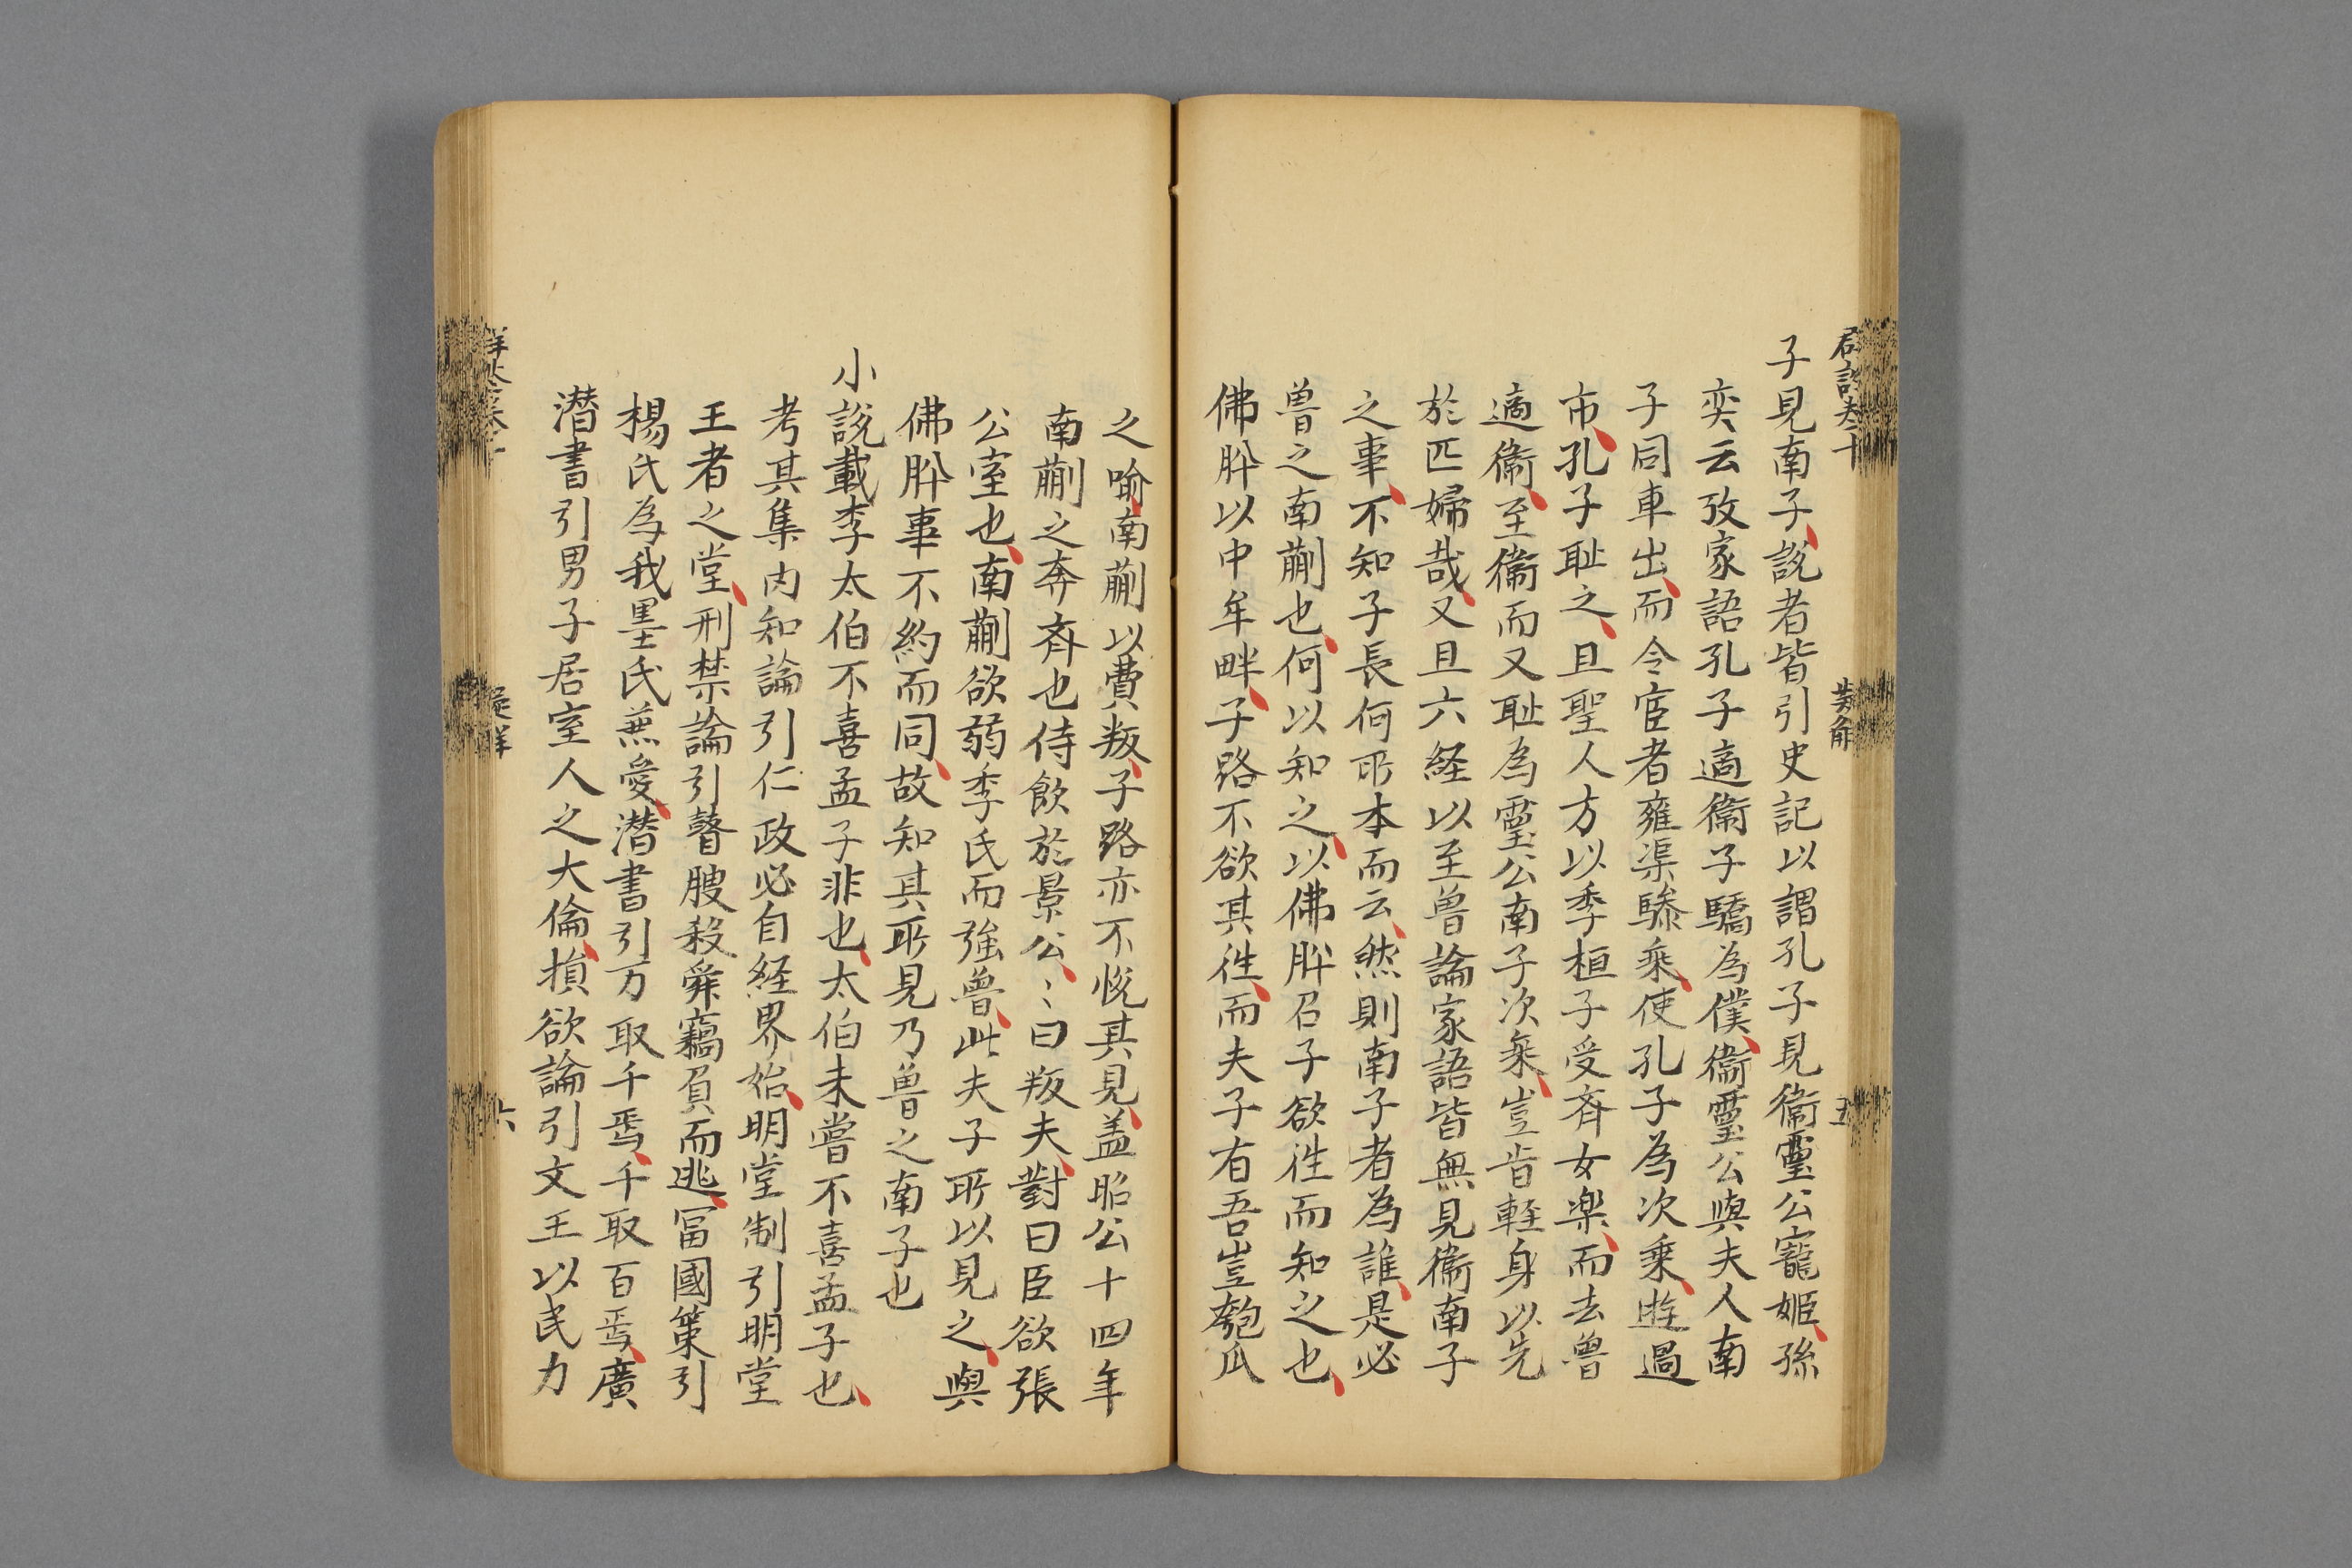 子見南子說者皆引史記以謂孔子見衞霊公寵姬孫
奕云攷家語孔子適衞子驕為僕衞霊公與夫人南
子同車出而令宦者雍渠驂乘使孔子為次乗遊過
市孔子耻之且聖人方以季桓子受斉女楽而去魯
適衞至衞而又耻為霊公南子次乗豈肯軽身以先
於匹婦哉又且六経以至魯論家語皆無見衞南子
之事不知子長何所本而云然則南子者為誰是必
魯之南蒯也何以知之以佛肸召子欲徃而知之也
佛肸以中牟畔子路不欲其徃而夫子有吾豈匏瓜
之喻南蒯以費叛子路亦不悅其見盖昭公十四年
南蒯之奔斉也侍飲於景公〻曰叛夫對曰臣欲張
公室也南蒯欲弱季氏而強魯此夫子所以見之與
佛肸事不約而同故知其所見乃魯之南子也
小說載李太伯不喜孟子非也太伯未嘗不喜孟子也
考其集内知論引仁政必自経界始明堂制引明堂
王者之堂刑禁論引瞽膄殺舜竊負而逃冨國策引
楊氏為我墨氏兼愛潜書引万取千焉千取百焉廣
潜書引男子居室人之大倫損欲論引文王以民力
五
六